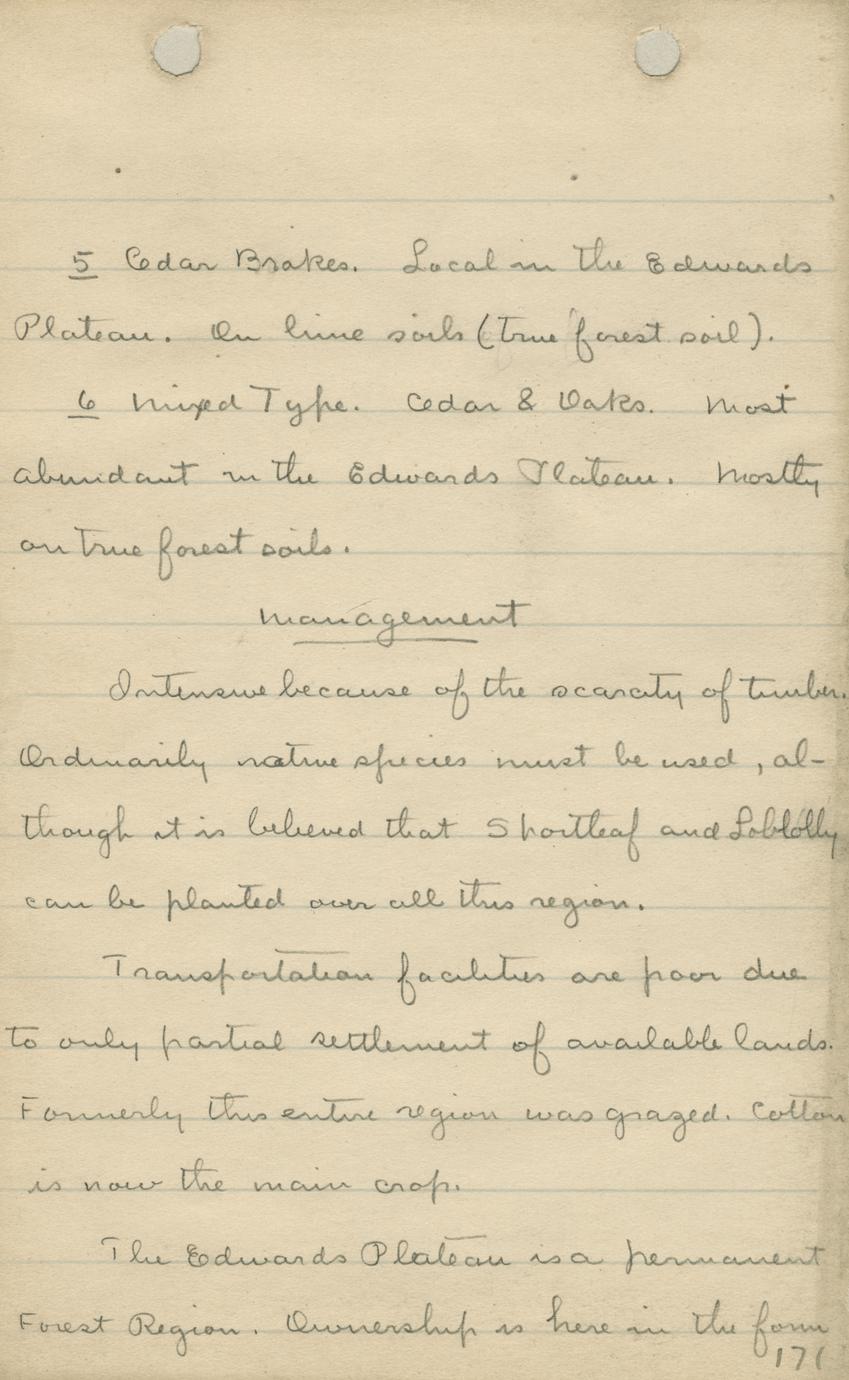 5 Cedar Brakes. Local in the Edwards
Plateau. On lime soils (true forest soil).
6 Mixed Type. Cedar & Oaks. Most
abundant in the Edwards Plateau. Mostly
on true forest soils.
Management
Intensive because of the scarcity of timber.
Ordinarily native species must be used, al-
though it is believed that Shortleaf and Loblolly
can be planted over all this region.
Transportation facilities are poor due
to only partial settlement of available lands.
Formerly this entire region was grazed. Cotton
is now the main crop.
The Edwards Plateau is a permanent
Forest Region. Ownership is here in the form
171